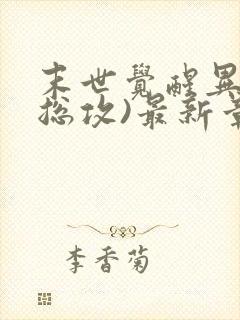 末世觉醒異
总攻)最新章
李香菊